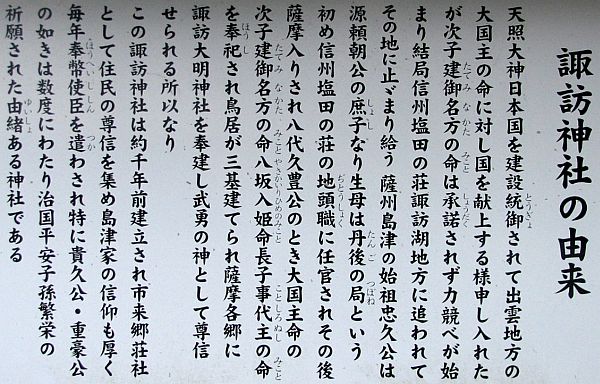 諏訪神社の由来
天照大神日本国を建設統御されて出雲地方の
大国主の命に対し国を献上する様申し入れた
が次子建御名方の命は承諾されず力競べが始
まり結局信州塩田の荘諏訪湖地方に追われて
その地に止ゞまり給う 薩州島津の始祖忠久公は
源頼朝公の庶子なり生母は丹後の局という
初め信州塩田の荘の地頭職に任官されその後
薩摩入りされ八代久豊公のとき大国主命の
次子建御名方の命八坂入姫命長子事代主の命
を奉祀され鳥居が三基建てられ薩摩各郷に
諏訪大明神社を奉建し武勇の神として尊信
せられる所以なり
この諏訪神社は約千年前建立され市来郷荘社
として住民の尊信を集め島津家の信仰も厚く
毎年奉幣使臣を遣わされ特に貴久公・重豪公
の如きは数度にわたり治国平安子孫繁栄の
祈願された由緒ある神社である